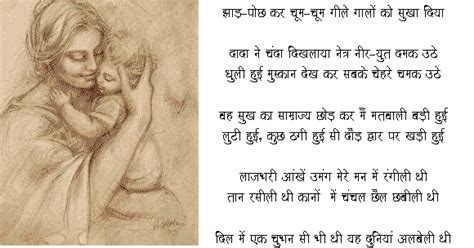 झाड़-पोछ कर चूम-चूम गीले गालों को सुखा दिया
दादा ने चंदा दिखलाया नेत्र नीर-युत दमक उठे
धुली हुई मुस्कान देख कर सबके चेहरे चमक उठे
वह सुख का साम्राज्य छोड़ कर मैं मतवाली बड़ी हुई
लुटी हुई, कुछ ठगी हुई सी दौड़ द्वार पर खड़ी हुई
लाजभरी आंखें उमंग मेरे मन में रंगीली थी
तान रसीली थी कानों में चंचल छैल छबीली थी
दिल में एक चुभन सी भी थी यह दुनियां अलबेली थी